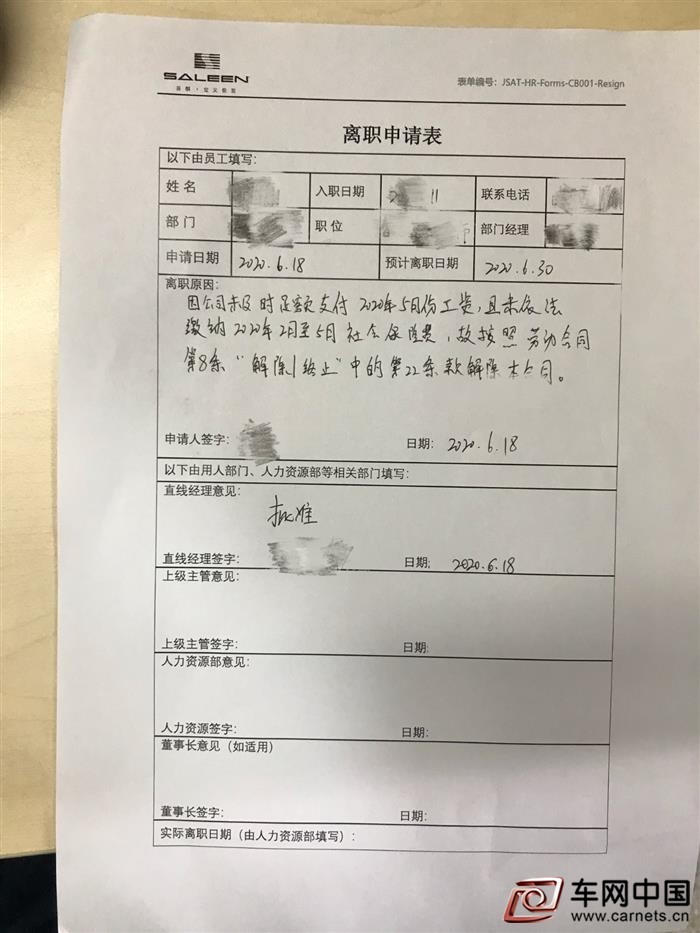 SALEEN
赛麟·定义极致
表单编号：JSAT-HR-Forms-CB001-Resign
离职申请表
以下由员工填写：
姓名 入职日期 11 联系电话
部门 职位 部门经理
申请日期 2020.6.18 预计离职日期 2020.6.30
离职原因：
因公司未及时足额支付2020年5月份工资，且未依法
缴纳2020年2月至5月社会保险费，故按照劳动合同
第8条“解除/终止”中的第22条款解除本公司。
申请人签字： 日期： 2020.6.18
以下由用人部门、人力资源部等相关部门填写：
直线经理意见：
批准
直线经理签字： 日期; 2020.6.18
上级主管意见：
上级主管签字： 日期：
人力资源部意见：
人力资源签字： 日期：
董事长意见（如适用）
董事长签字： 日期：
实际离职日期（由人力资源部填写）：
车网中国
www.carnets.cn